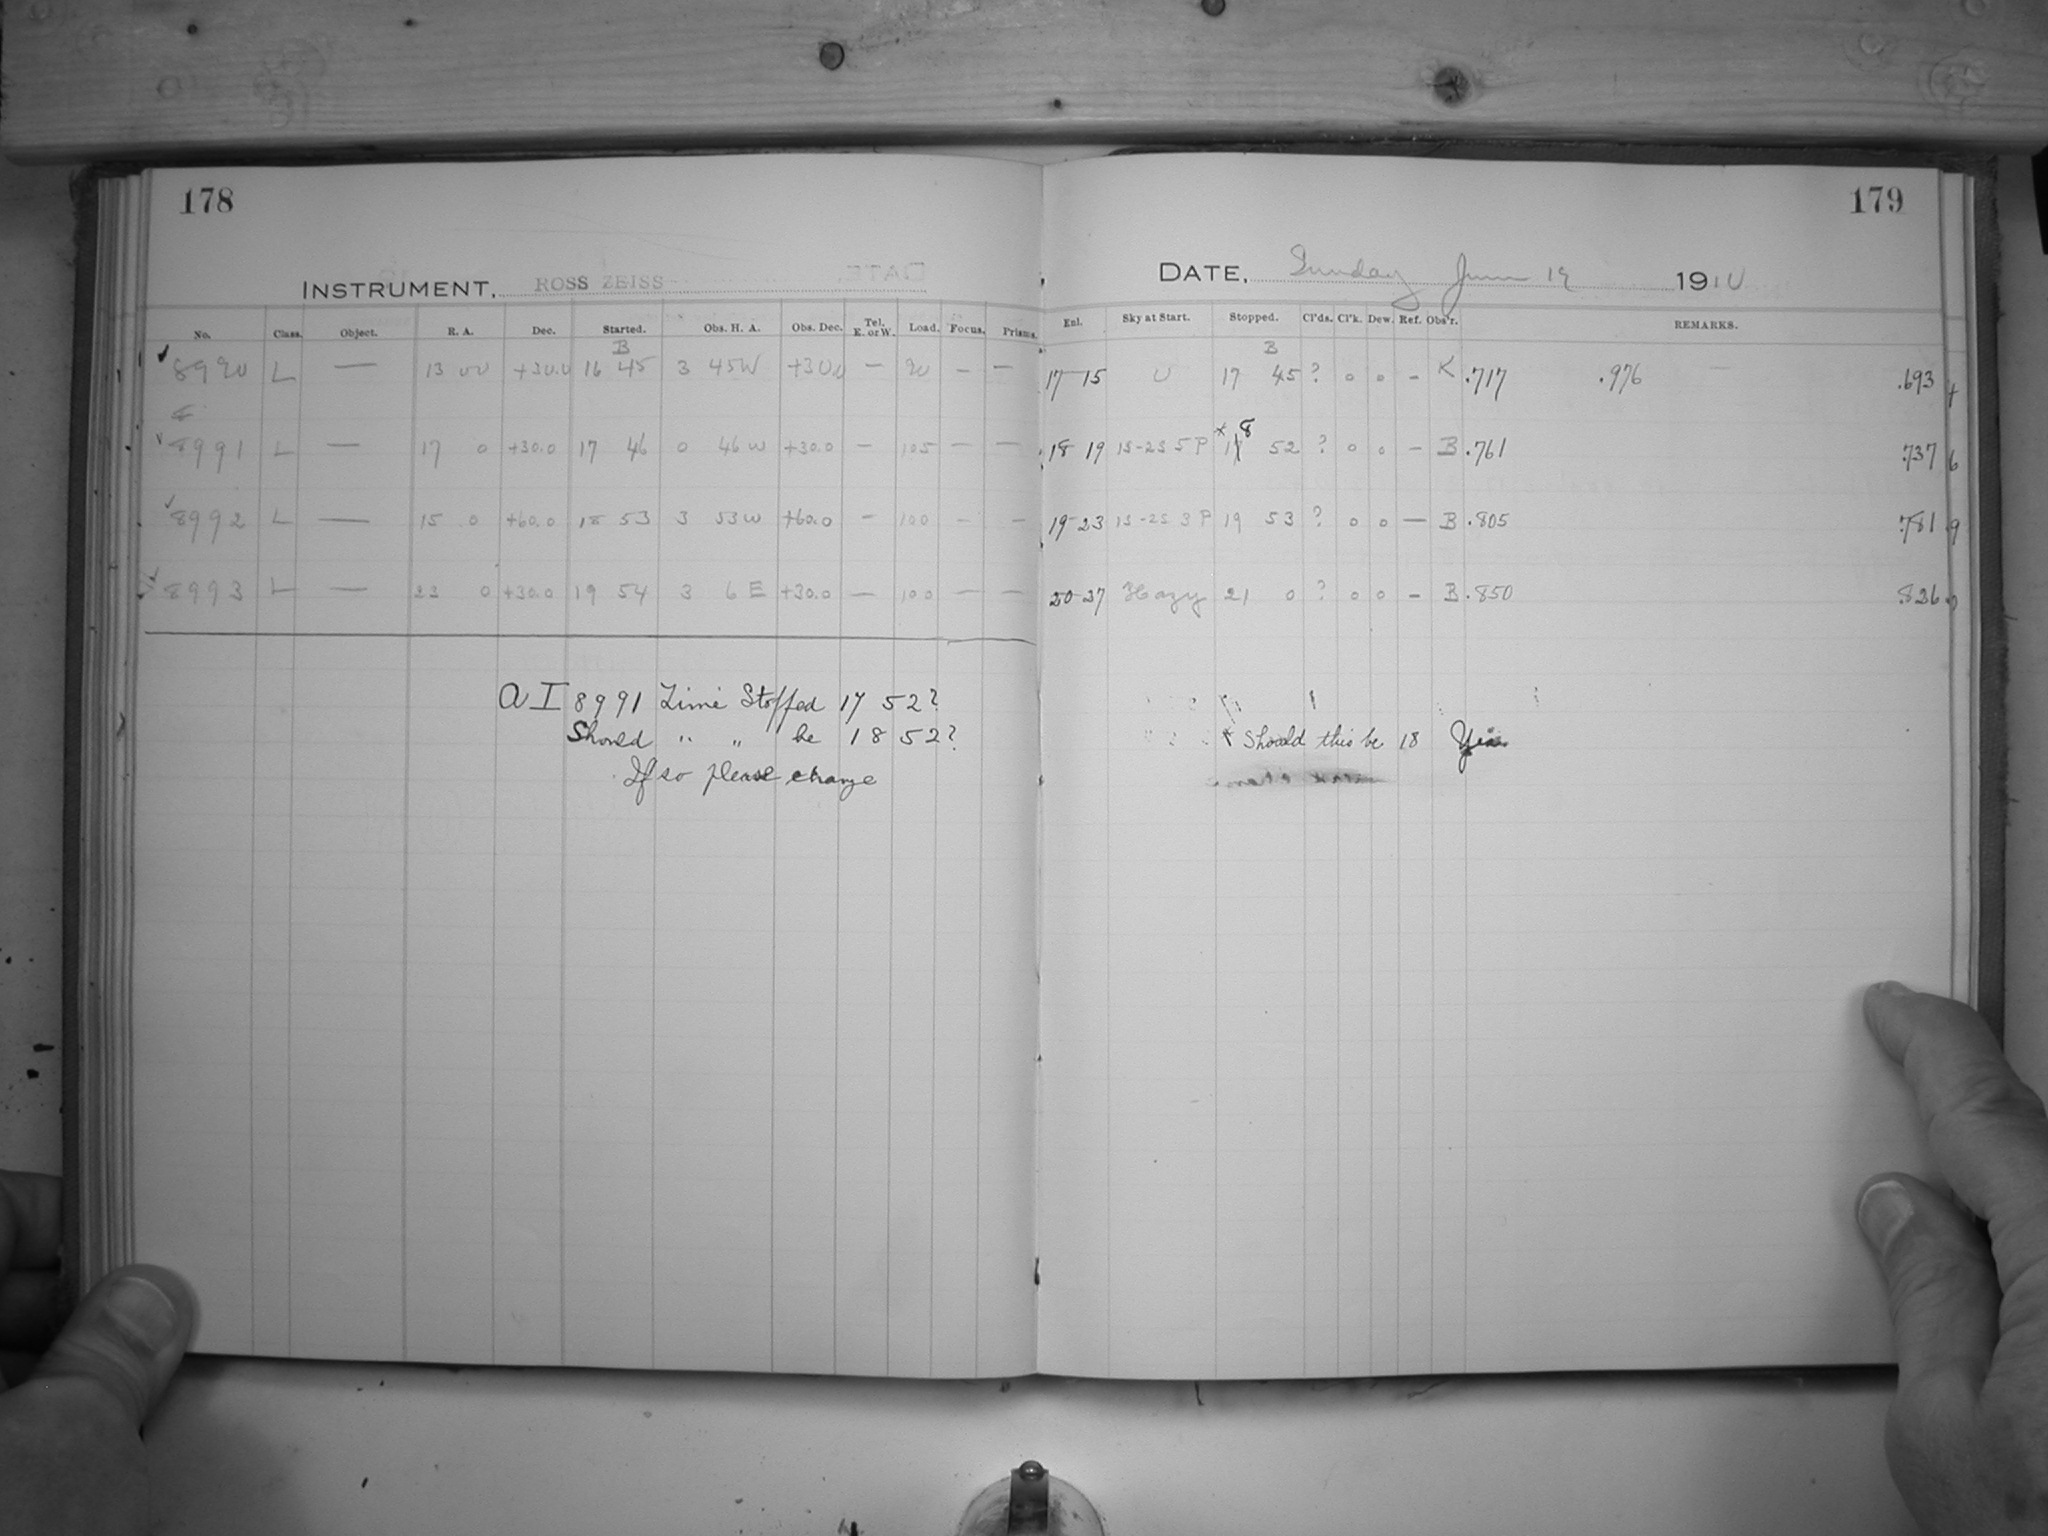 178
179
INSTRUMENT, ROSS ZEISS
DATE, Sunday June 19 1910
No. Class. Object. R. A. Dec. Started. Obs. H. A. Obs. Dec. Tel. E. or W. Load. Focus. Prisms.
Enl. Sky at Start. Stopped. Cl'ds. Cl'k. Dew. Ref. Obs'r. REMARKS.
B
B
8990 L — 13 00 +30.0 16 45 3 45W +30.0 — 90 — —
17-15 0 17 45 ? 0 0 - K .717 .976 — .693 4
8991 L — 17 0 +30.0 17 46 0 46 W +30.0 — 105 — —
18 19 1S-2S 5P * 8 17 52 ? 0 0 — B .761 .737 6
8992 L — 15 0 +60.0 18 53 3 53W +60.0 — 100 - —
19-23 1S-2S 3P 19 53 ? 0 0 — B .805 .781 9
8993 L — 23 0 +30.0 19 54 3 6 E +30.0 — 100 — —
20-27 Hazy 21 0 ? 0 0 - B .850 .826
A I 8991 Time Stopped 17 52?
Should " " be 18 52?
If so please change
* Should this be 18 Yes